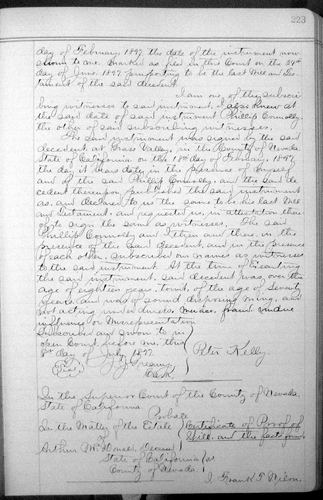 223
day of February, 1897, the date of the instrument now
shown to me. Marked as filed in this Court on the
day of June, 1897 purporting to be the last Will and Tes-
tament of the said decedent.
I am one of the subscri-
bing witnesses to said instrument. I also knew at
the said date of said instrument Phillip Connolly,
the other of said subscribing witnesses.
The said instrument was signed by the said
decedent, at Grass Valley, in the County of Nevada,
State of California on the 18th day of February, 1897,
the day it bears date, in the presence of myself
and of the said Phillip Connolly, and the said de-
cedent thereupon published the said instrument
as, and declared to us the same to be his last Will
and Testament, and requested us, in attestation there-
of to sign the same as witnesses. The said
Phillip Connolly and I then and there, in the
presence of the said decedent, and in the presence
of each other, subscribed our names as witnesses
to the said instrument. At the time of executing
the said instrument, said decedent was over the
age of eighteen years, to wit, of the age of Seventy
years, and was of sound disposing mind, and
not acting under duress, menace, fraud, undue
influence, or misrepresentation
Subscribed and sworn to in
open Court before me, this
day of July, 1897
Peter Kelly
Clerk
In the Superior Court of the County of Nevada
State of California
Probate
In the Matter of the Estate
of
Certificate of Proof of
Will, and the facts found.
Arthur Deceased
State of California
County of Nevada
ss
I, Frank T. Nilon,